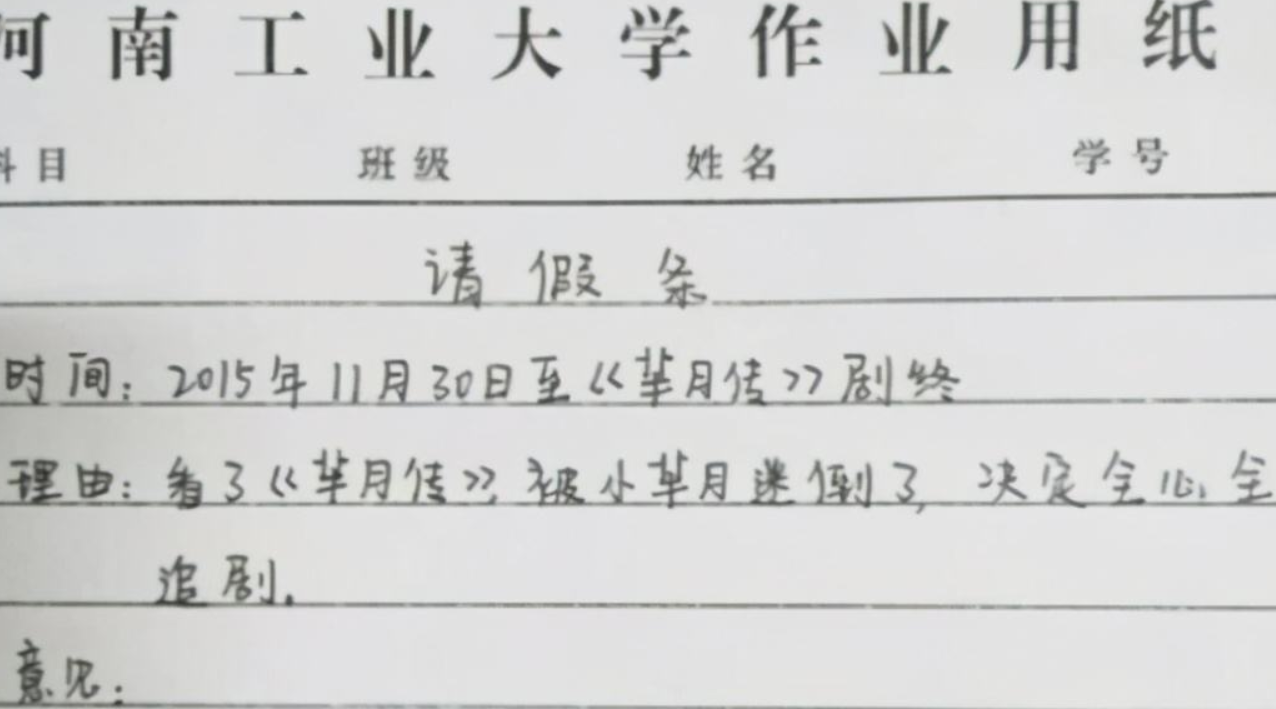 河南工业大学作业用纸
科目 班级 姓名 学号
请假条
时间：2015年11月30日至《芈月传》剧终
理由：看了《芈月传》，被小芈月迷倒了，决定全心全
追剧.
意见：